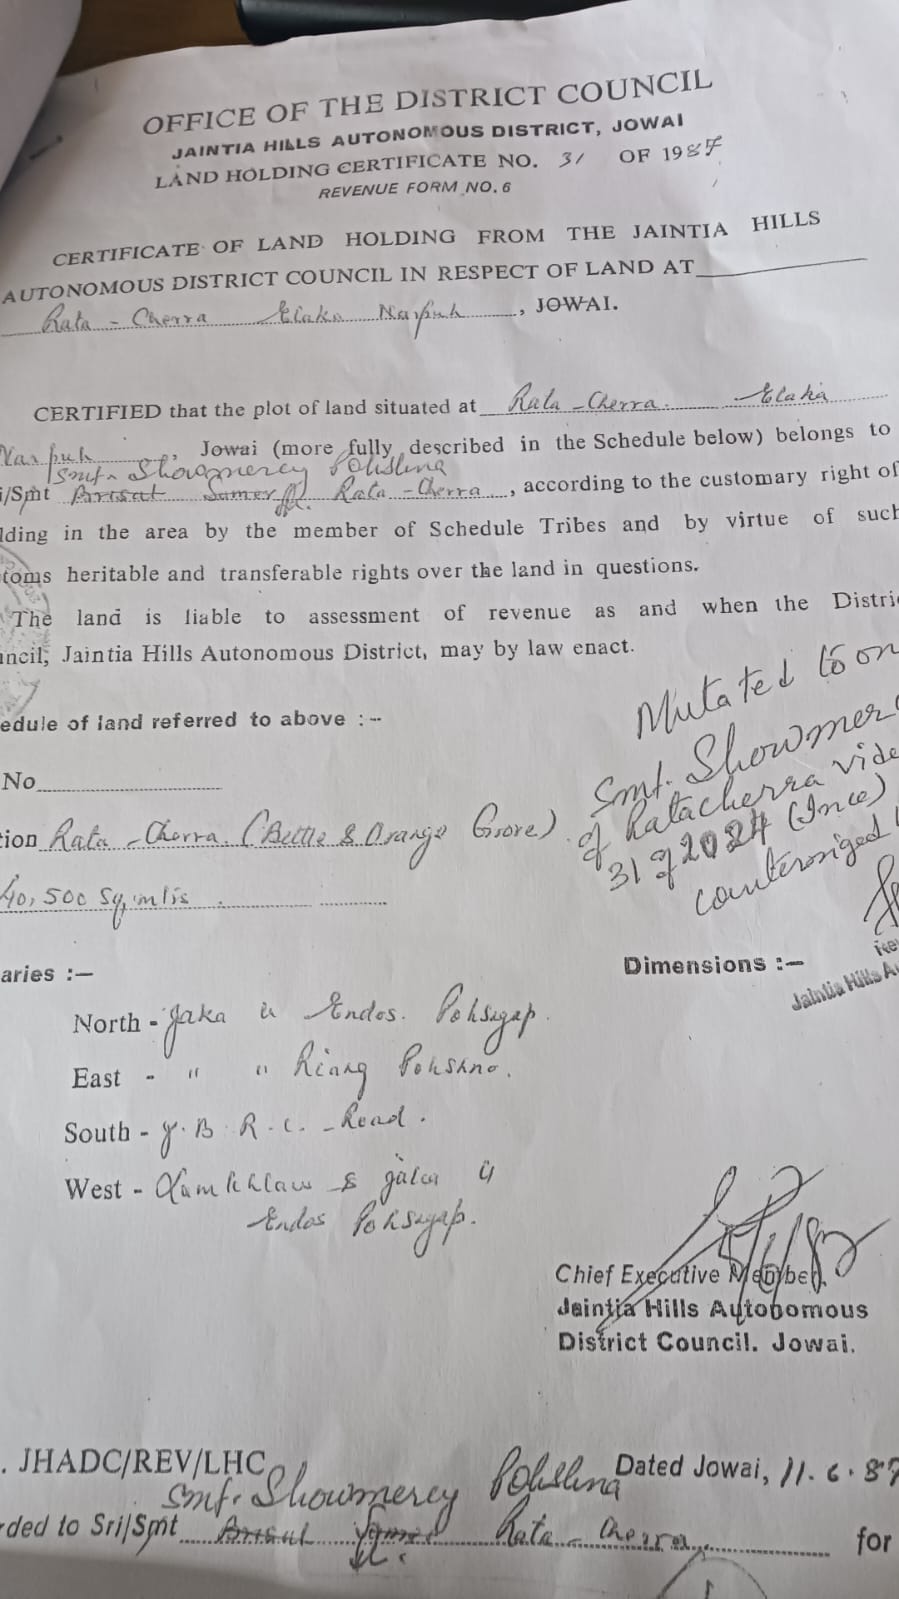 OFFICE OF THE DISTRICT COUNCIL
JAINTIA HILLS AUTONOMOUS DISTRICT, JOWAI
LAND HOLDING CERTIFICATE NO. 31 OF 1987
REVENUE FORM NO. 6
CERTIFICATE OF LAND HOLDING FROM THE JAINTIA HILLS
AUTONOMOUS DISTRICT COUNCIL IN RESPECT OF LAND AT
Rata - Cherra Elaka Narpuh, JOWAI.
CERTIFIED that the plot of land situated at Rata - Cherra Elaka
Narpuh, Jowai (more fully described in the Schedule below) belongs to
Smt. Showmercy Pohshna
i/Smt Rata - Cherra, according to the customary right of
lding in the area by the member of Schedule Tribes and by virtue of such
toms heritable and transferable rights over the land in questions.
The land is liable to assessment of revenue as and when the Distric
uncil, Jaintia Hills Autonomous District, may by law enact.
edule of land referred to above :--
Mutated to
Smt. Showmer
of Ratacherra vide
31 of 2024
countersigned
No
tion Rata - Cherra. (Bettle & Orange Grove)
40,500 Sq. mtis
aries :—
Dimensions :—
Jaintia Hills A
North - Endos. Pohsyap.
East - " " Riang Pohshno.
South - J. B. R. C. - Road.
West - &
Endos Pohsyap.
Chief Executive Member,
Jaintia Hills Autonomous
District Council. Jowai.
. JHADC/REV/LHC Dated Jowai, 11.6.87
Smt. Showmercy Pohshna
rded to Sri/Smt Rata - Cherra, for